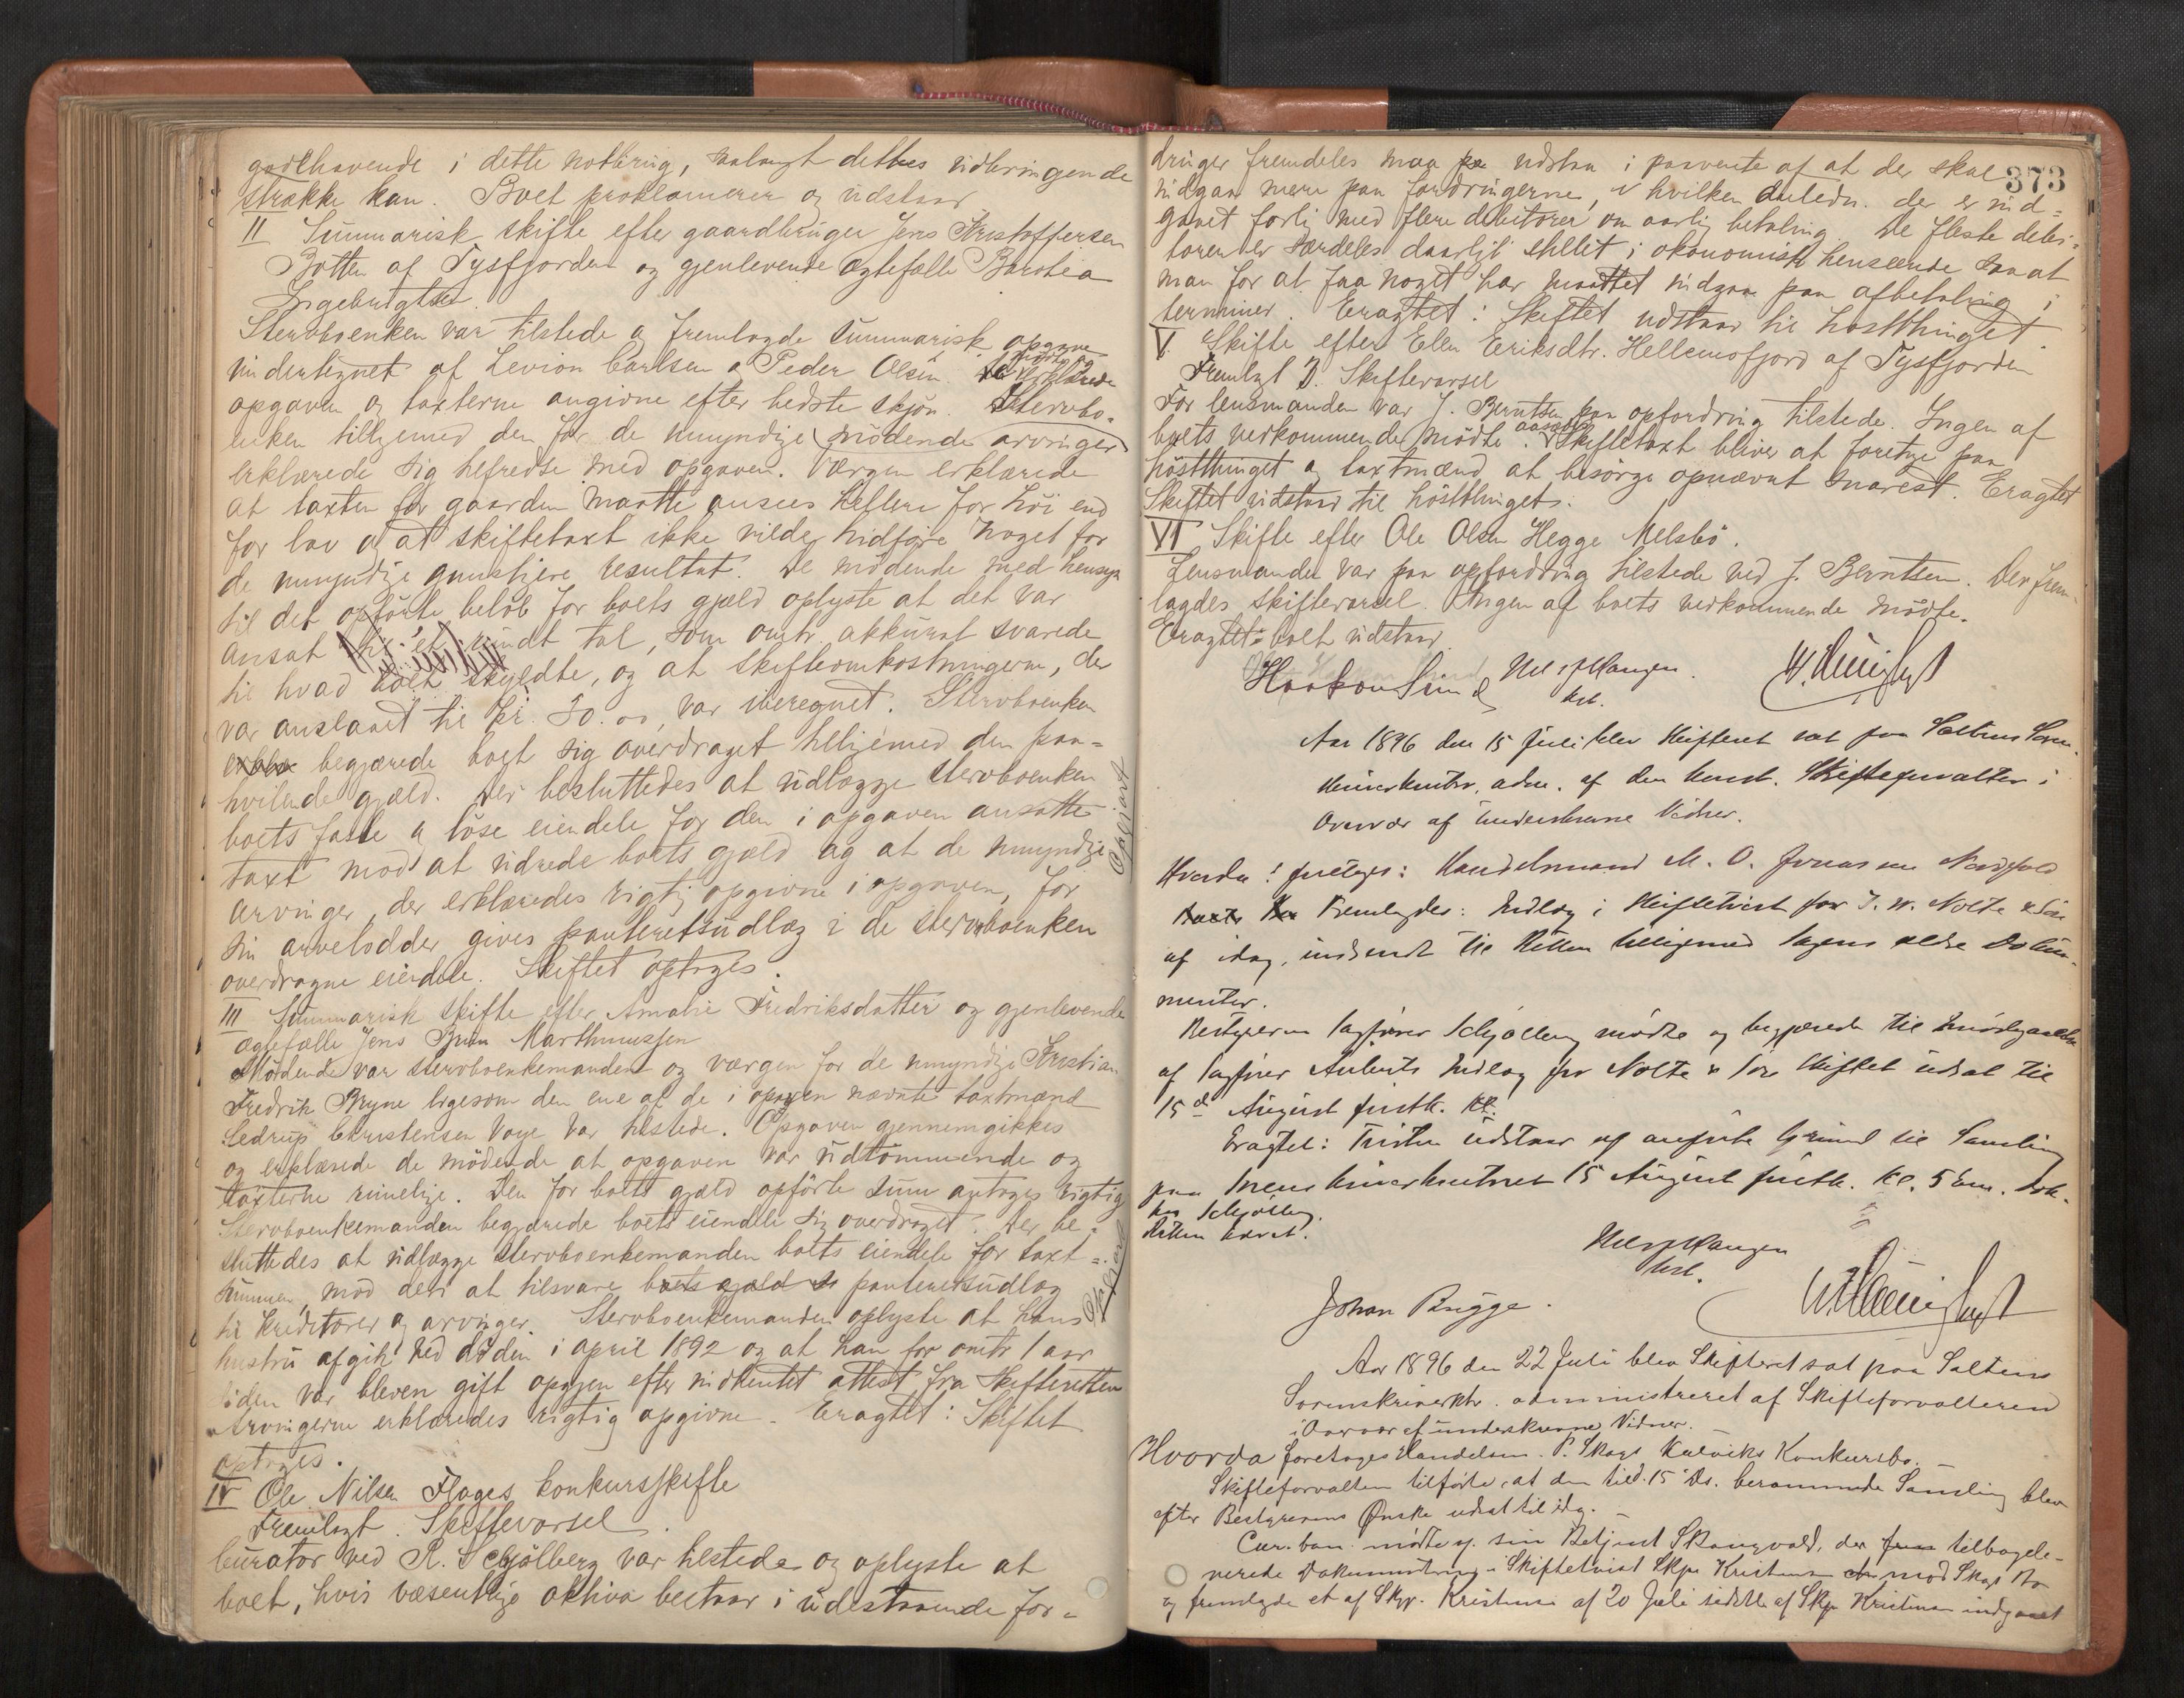 godthavende i dette nothring, saalangt dettes udbringende
strække kan. Boet proklamerer og udstaar
II Summarisk skifte efter gaardbruger Jens Kristoffersen
Botten af Tysfjorden og gjenlevende ægtefælle Barolia
Ingebrigtsd.
Stervboenken var tilstede og fremlagde summarisk opgave
undertegnet af Levion Carlsen og Peder Olsen. erklærede
opgaven og taxterne angivne efter bedste skjøn. Stervbo-
enken tilligemed den for de umyndige mødende arvinger
erklærede sig tilfredse med opgaven. Værgen erklærede
at taxten for gaarden maatte ansees hellere for høi end
for lav og at skiftetaxt ikke vilde hidføre noget for
de umyndige gunstigere resultat. De mødende med hensyn
til det opførte beløb for boets gjæld oplyste at det var
ansat til et rundt tal, som omtr. akkurat svarede
til hvad boet skyldte, og at skifteomkostningerne, der
var anslaaet til kr. 50.00, var iberegnet. Stervboenken
begjærede boet sig overdraget tilligemed den paa-
hvilende gjæld. Der besluttedes at udlægge stervboenken
boets faste og løse eiendele for den i opgaven ansatte
taxt mod at udrede boets gjæld og at de umyndige
arvinger, der erklæredes rigtig opgivne i opgaven, for
sin arvelodder gives panteretsudlæg i de stervboenken
overdragne eiendele. Skiftet optages.
Opgjort
III Summarisk skifte efter Amalie Fredriksdatter og gjenlevende
ægtefælle Jens Brun Marthinussen
Mødende var stervboenkemanden og værgen for de umyndige Kristian
Fredrik Bryne ligesom den ene af de i opgaven nævnte taxtmænd
Sedrup Christensen Vaye var tilstede. Opgaven gjennemgikkes
og erklærede de mødende at opgaven var udtømmende og
taxterne rimelige. Den for boets gjæld opførte sum antages rigtig
Stervboenkemanden begjærede boets eiendele sig overdraget. Der be-
sluttedes at udlægge stervboenkemanden boets eiendele for taxt-
summen, mod deri at tilsvare boets gjæld panteretsudlæg
til kreditorer og arvinger. Stervboenkemanden oplyste at hans
hustru afgik ved døden i april 1892 og at han for omtr. 1 aar
siden var bleven gift opigjen efter udhentet attest fra skifteretten
Arvingerne erklæredes rigtig opgivne. Eragtet: Skiftet
optages.
Opgjort
IV Ole Nilsen Flages konkursskifte
Fremlagt. Skiftevarsel.
Curator ved R. Schjølberg var tilstede og oplyste at
boet, hvis væsentlige aktiva bestaar i udestaaende for-
373
dringer fremdeles maa udstaa i paavente af at der skal
indgaa mere paa fordringerne, i hvilken anledn. der er ind-
gaaet forlig med flere debitorer om aarlig betaling. De fleste debi-
torer er særdeles daarligt stillet i økonomisk henseende saa at
man for at faa noget har maattet indgaa paa afbetaling i
terminer. Eragtet: Skiftet udstaar til høstthinget.
V. Skifte efter Elen Eriksdtr. Hellemofjord af Tysfjorden
Fremlagt D. Skiftevarsel
For lensmanden var J. Berntsen paa opfordring tilstede. Ingen af
boets vedkommende mødte. Skiftetaxt bliver at foretage paa
høstthinget og taxtmænd at besørge opnævnt snarest. Eragtet
Skiftet udstaar til høstthinget.
VI Skifte efter Ole Olsen Hegge Melsbø.
Lensmanden var paa opfordring tilstede ved J. Berntsen. Der frem-
lagdes skiftevarsel. Ingen af boets vedkommende mødte.
Eragtet: boet udstaar.
Haakon Lund
Aar 1896 den 15 Juli blev Skifteret sat paa Saltens Soren-
skriverkontor, adm. af den konst. Skifteforvalter i
Overvær af underskrevne Vidner.
Hvorda! foretages: Handelsmand M. O. Jonassen Nordfold
Fremlagdes: Indlæg i Skiftetvist for J. W. Nolte & Søn
af idag, indsendt til Retten tilligemed Sagens ældre Doku-
menter.
Bestyreren Sagfører Schjølberg mødte og begjærede til Imødegaaelse
af Sagfører Auberts Indlæg for Nolte & Søn Skiftet udsat til
15d August førstk.
Eragtet: Tvisten udstaar af anførte Grund til Samling
paa Sorenskriverkontoret 15 August førstk. Kl. 5 Em.
Schjølberg.
Retten hævet.
Johan Brygge.
Aar 1896 den 22 Juli blev Skifteret sat paa Saltens
Sorenskriverktr. administreret af Skifteforvalteren
i Overvær af underskrevne Vidner.
Hvorda foretages Handelsm. P. Skogs Kulviks Konkursbo.
Skifteforvalteren tilførte, at den til d. 15 ds. berammede Samling blev
efter Bestyrerens Ønske udsat til idag.
Cur. bon. mødte v. sin Betjent Skaugvold, der tilbagele-
verede Dokumenterne i Skiftetvist Skpr Kristensen mod Skogs Bo
og fremlagde et af Skpr. Kristensen af 20 Juli sidstl. af Skpr Kristensen indgaaet